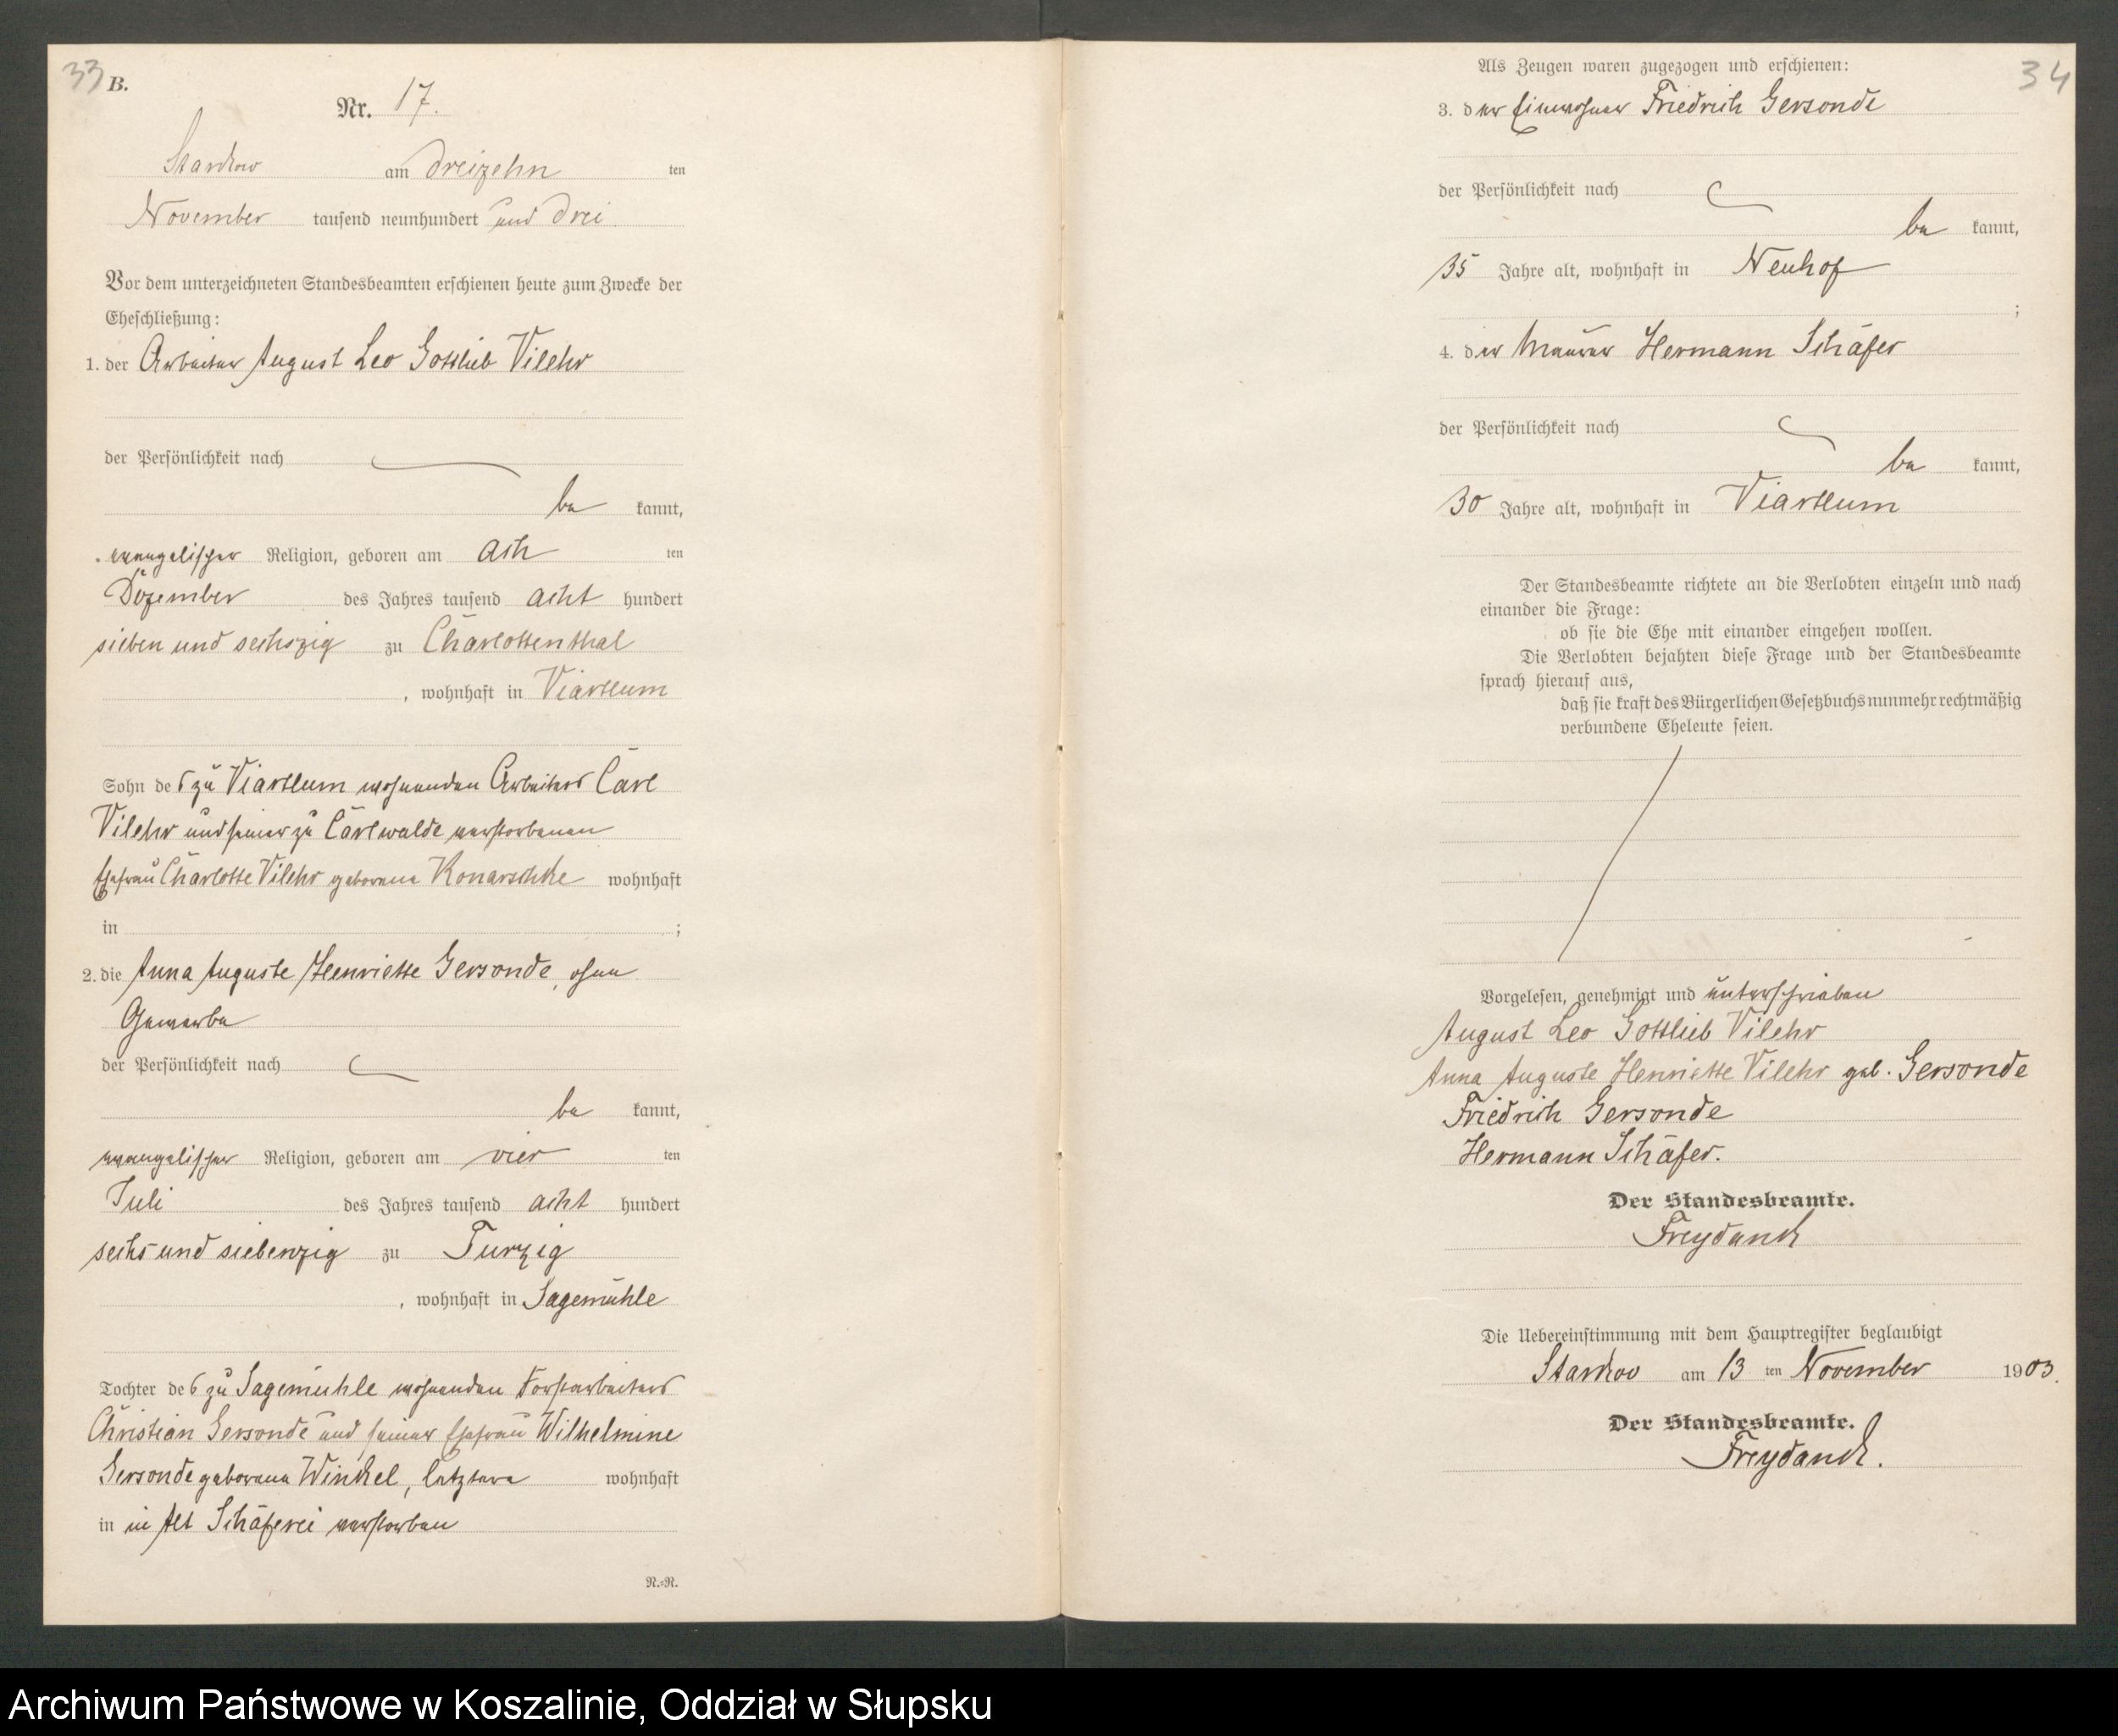 33 B.
Nr. 17.
Starkow am dreizehn ten
November tausend neunhundert und drei
Vor dem unterzeichneten Standesbeamten erschienen heute zum Zwecke der
Eheschließung:
1. der Arbeiter August Leo Gottlieb Vilehr
der Persönlichkeit nach
be kannt,
evangelischer Religion, geboren am ach ten
Dezember des Jahres tausend acht hundert
sieben und sechszig zu Charlottenthal
, wohnhaft in Viartlum
Sohn des zu Viartlum wohnenden Arbeiters Carl
Vilehr und seiner zu Carlwalde verstorbenen
Ehefrau Charlotte Vilehr geborene Konarschke wohnhaft
in ;
2. die Anna Auguste Henriette Gersonde, ohne
Gewerbe
der Persönlichkeit nach
be kannt,
evangelischer Religion, geboren am vier ten
Juli des Jahres tausend acht hundert
sechs und siebenzig zu Turzig
, wohnhaft in Sagemühle
Tochter des zu Sagemühle wohnenden Forstarbeiters
Christian Gersonde und seiner Ehefrau Wilhelmine
Gersonde geborene Winkel, letztere wohnhaft
in in Alt Schäferei verstorben
N.=N.
34
Als Zeugen waren zugezogen und erschienen:
3. der Einwohner Friedrich Gersonde
der Persönlichkeit nach
be kannt,
35 Jahre alt, wohnhaft in Neuhof
;
4. der Maurer Hermann Schäfer
der Persönlichkeit nach
be kannt,
30 Jahre alt, wohnhaft in Viartlum
Der Standesbeamte richtete an die Verlobten einzeln und nach
einander die Frage:
ob sie die Ehe mit einander eingehen wollen.
Die Verlobten bejahten diese Frage und der Standesbeamte
sprach hierauf aus,
daß sie kraft des Bürgerlichen Gesetzbuchs nunmehr rechtmäßig
verbundene Eheleute seien.
Vorgelesen, genehmigt und unterschrieben
August Leo Gottlieb Vilehr
Anna Auguste Henriette Vilehr geb. Gersonde
Friedrich Gersonde
Hermann Schäfer.
Der Standesbeamte.
Freydank
Die Uebereinstimmung mit dem Hauptregister beglaubigt
Starkow am 13 ten November 1903.
Der Standesbeamte.
Freydank.
Archiwum Państwowe w Koszalinie, Oddział w Słupsku